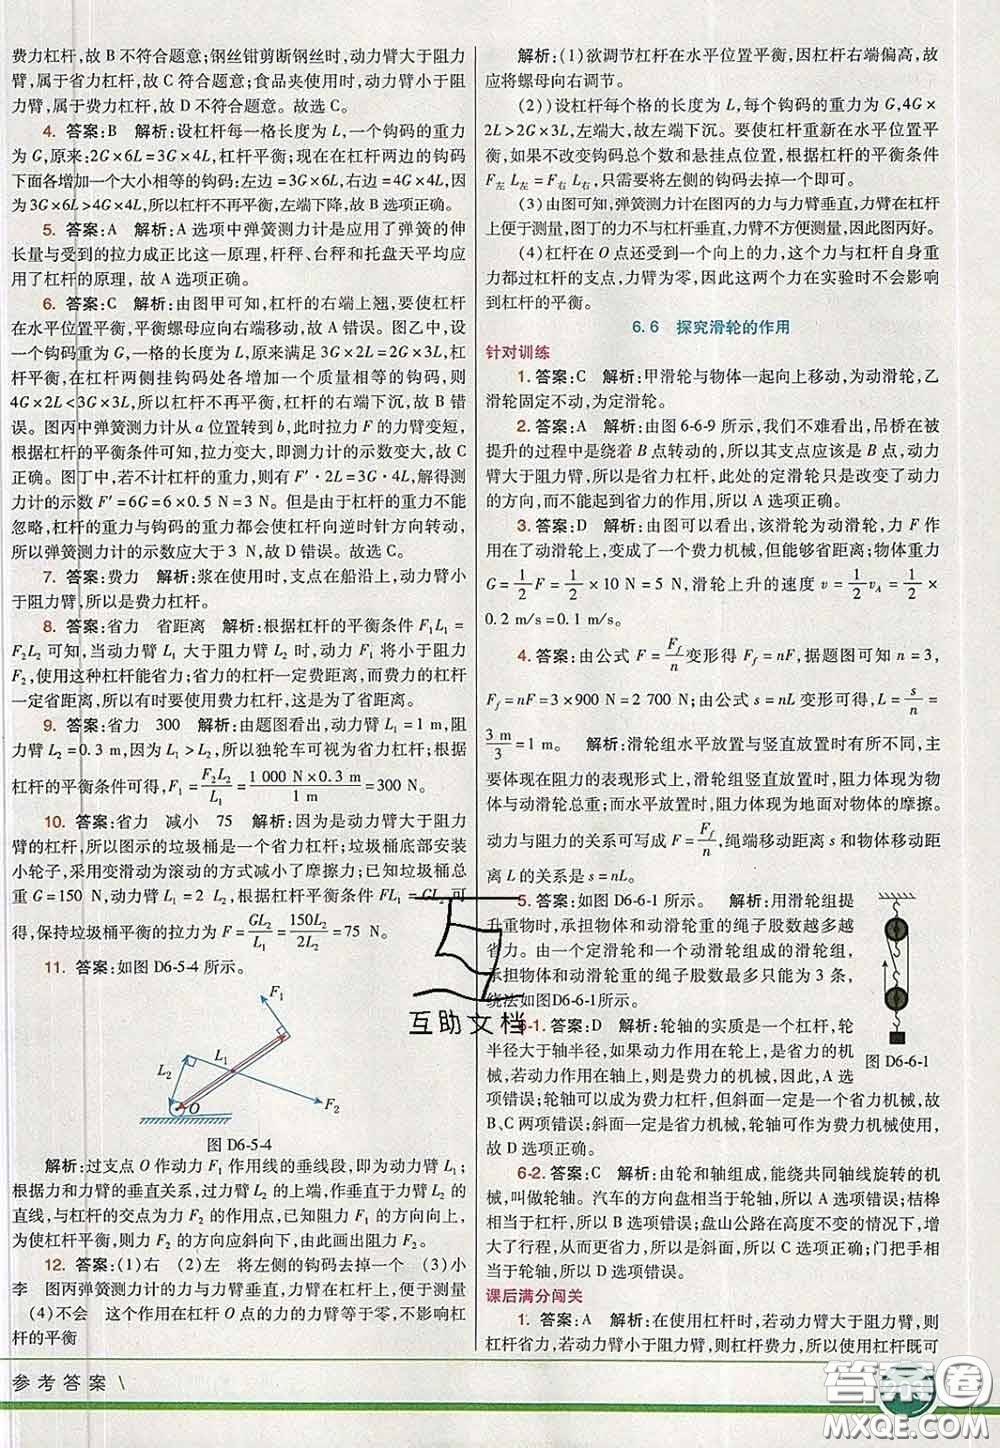 费力杠杆,故 B 不符合题意;钢丝钳剪断钢丝时,动力臂大于阻力
臂,属于省力杠杆,故 C 符合题意;食品夹使用时,动力臂小于阻
力臂,属于费力杠杆,故 D 不符合题意。故选 C。
4. 答案:B 解析:设杠杆每一格长度为 L,一个钩码的重力
为 G,原来:2G×6L=3G×4L,杠杆平衡;现在在杠杆两边的钩码
下面各增加一个大小相等的钩码:左边=3G×6L,右边=4G×4L,因
为 3G×6L>4G×4L,所以杠杆不再平衡,左端下降,故 B 正确。
5. 答案:A 解析:A 选项中弹簧测力计是应用了弹簧的伸
长量与受到的拉力成正比这一原理,杆秤、台秤和托盘天平均应
用了杠杆的原理,故 A 选项正确。
6. 答案:C 解析:由图甲可知,杠杆的右端上翘,要使杠杆
在水平位置平衡,平衡螺母应向右端移动,故 A 错误。图乙中,设
一个钩码重为 G,一格的长度为 L,原来 3G×2L=2G×3L,杠
杆平衡,在杠杆两侧挂钩码处各增加一个质量相等的钩码,则
4G×2L<3G×3L,所以杠杆不再平衡,杠杆的右端下沉,故 B 错
误。图丙中弹簧测力计从 a 位置转到 b,此时拉力 F 的力臂变短,
根据杠杆的平衡条件可知,拉力变大,即测力计的示数变大,故
C 正确。图丁中,若不计杠杆的重力,则有 F′·2L=G×4L,解得测
力计的示数 F′=6G=6×0.5 N=3 N。但是由于杠杆的重力不能
忽略,杠杆的重力与钩码的重力都会使杠杆向逆时针方向转动,
所以弹簧测力计的示数应大于 3 N,故 D 错误。故选 C。
7. 答案:费力 解析:桨在使用时,支点在船沿上,动力臂小
于阻力臂,所以是费力杠杆。
8. 答案:省力 省距离 解析:根据杠杆的平衡条件 F₁L₁=
F₂L₂ 可知,当动力臂 L₁ 大于阻力臂 L₂ 时,动力 F₁ 将小于阻力
F₂,使用这种杠杆能省力;省力的杠杆一定费距离,而费力的杠杆
一定省距离,所以有时要使用费力杠杆,就是为了省距离。
9. 答案:省力 300 解析:由题图看出,动力臂 L₁=1 m,阻
力臂 L₂=0.3 m,因为 L₁>L₂,所以独轮车可视为省力杠杆;根据
杠杆的平衡条件可得,F₁=F₂L₂/L₁=1 000 N×0.3 m/1 m=300 N。
10. 答案:省力 减小 75 解析:因为是动力臂大于阻力
臂的杠杆,所以图示的垃圾桶是一个省力杠杆;垃圾桶底部安装
小轮子,采用变滑动为滚动的方式减小了摩擦力;已知垃圾桶总
重 G=150 N,动力臂 L₁=2 L₂,根据杠杆平衡条件 FL₁=GL₂ 可
得,保持垃圾桶平衡的拉力为 F=GL₂/L₁=150L₂/2L₂=75 N。
11. 答案:如图 D6-5-4 所示。
F₁
L₁
L₂
O
F₂
图 D6-5-4
解析:过支点 O 作动力 F₁ 作用线的垂线段,即为动力臂 L₁;
根据力和力臂的垂直关系,过力臂 L₂ 的上端,作垂直于力臂 L₂ 的
直线,与杠杆的交点为力 F₂ 的作用点,已知阻力 F₁ 的方向向上,
为使杠杆平衡,则力 F₂ 的方向应斜向下,由此画出阻力 F₂。
12. 答案:(1)右 (2)左 将左侧的钩码去掉一个 (3)小
李 图丙弹簧测力计的力与力臂垂直,力臂在杠杆上,便于测量
(4)不会 这个作用在杠杆 O 点的力的力臂等于零,不影响杠
杆的平衡
解析:(1)欲调节杠杆在水平位置平衡,因杠杆右端偏高,故
应将螺母向右调节。
(2))设杠杆每个格的长度为 L,每个钩码的重力为 G,4G×
2L>2G×3L,左端大,故左端下沉。要使杠杆重新在水平位置平
衡,如果不改变钩码总个数和悬挂点位置,根据杠杆的平衡条件
F左 L左=F右 L右,只需要将左侧的钩码去掉一个即可。
(3)由图可知,弹簧测力计在图丙的力与力臂垂直,力臂在杠杆
上便于测量,图丁的力不与杠杆垂直,力臂不方便测量,因此图丙好。
(4)杠杆在 O 点还受到一个向上的力,这个力与杠杆自身重
力都过杠杆的支点,力臂为零,因此这两个力在实验时不会影响
到杠杆的平衡。
6.6 探究滑轮的作用
针对训练
1. 答案:C 解析:甲滑轮与物体一起向上移动,为动滑轮,乙
滑轮固定不动,为定滑轮。
2. 答案:A 解析:由图 6-6-9 所示,我们不难看出,吊桥在被
提升的过程中是绕着 B 点转动的,所以其支点应该是 B 点,动力
臂大于阻力臂,所以是省力杠杆,此处的定滑轮只是改变了动力
的方向,而不能起到省力的作用,所以 A 选项正确。
3. 答案:D 解析:由图可以看出,该滑轮为动滑轮,力 F 作
用在了动滑轮上,变成了一个费力机械,但能够省距离;物体重力
G=1/2F=1/2×10 N=5 N,滑轮上升的速度 v=1/2vA=1/2×
0.2 m/s=0.1 m/s。
4. 答案:由公式 F=Ff/n变形得 Ff=nF,据题图可知 n=3,
Ff=nF=3×900 N=2 700 N;由公式 s=nL 变形可得,L=s/n=
3 m/3=1 m。 解析:滑轮组水平放置与竖直放置时有所不同,主
要体现在阻力的表现形式上,滑轮组竖直放置时,阻力体现为物体
与动滑轮总重;而水平放置时,阻力体现为地面对物体的摩擦。
动力与阻力的关系可写成 F=Ff/n,绳端移动距离 s 和物体移动距
离 L 的关系是 s=nL。
5. 答案:如图 D6-6-1 所示。 解析:用滑轮组提
升重物时,承担物体和动滑轮重的绳子股数越多越
省力。由一个定滑轮和一个动滑轮组成的滑轮组,
承担物体和动滑轮重的绳子股数最多只能为 3 条,
绕法如图D6-6-1所示。
图 D6-6-1
6-1. 答案:D 解析:轮轴的实质是一个杠杆,轮
半径大于轴半径,如果动力作用在轮上,是省力的机
械,若动力作用在轴上则为费力的机械,因此 A 选项错误;轮轴可以成为费力的机械,但斜面一定是一个省力机械,故
B、C 两项错误;斜面一定是省力机械,轮轴可作为费力机械使用,
故 D 选项正确。
6-2. 答案:C 解析:由轮和轴组成,能绕共同轴线旋转的机
械,叫做轮轴。汽车的方向盘相当于轮轴,所以 A 选项错误;桔槔
相当于杠杆,所以 B 选项错误;盘山公路在高度不变的情况下,增
大了行程,从而更省力,所以是斜面,所以 C 选项正确;门把手相
当于轮轴,所以 D 选项错误。
课后满分闯关
1. 答案:A 解析:在使用杠杆时,若动力臂大于阻力臂,则
杠杆省力,若动力臂小于阻力臂,则杠杆费力,所以使用杠杆既可
互助文档
参考答案
答案圈
MXQE.COM